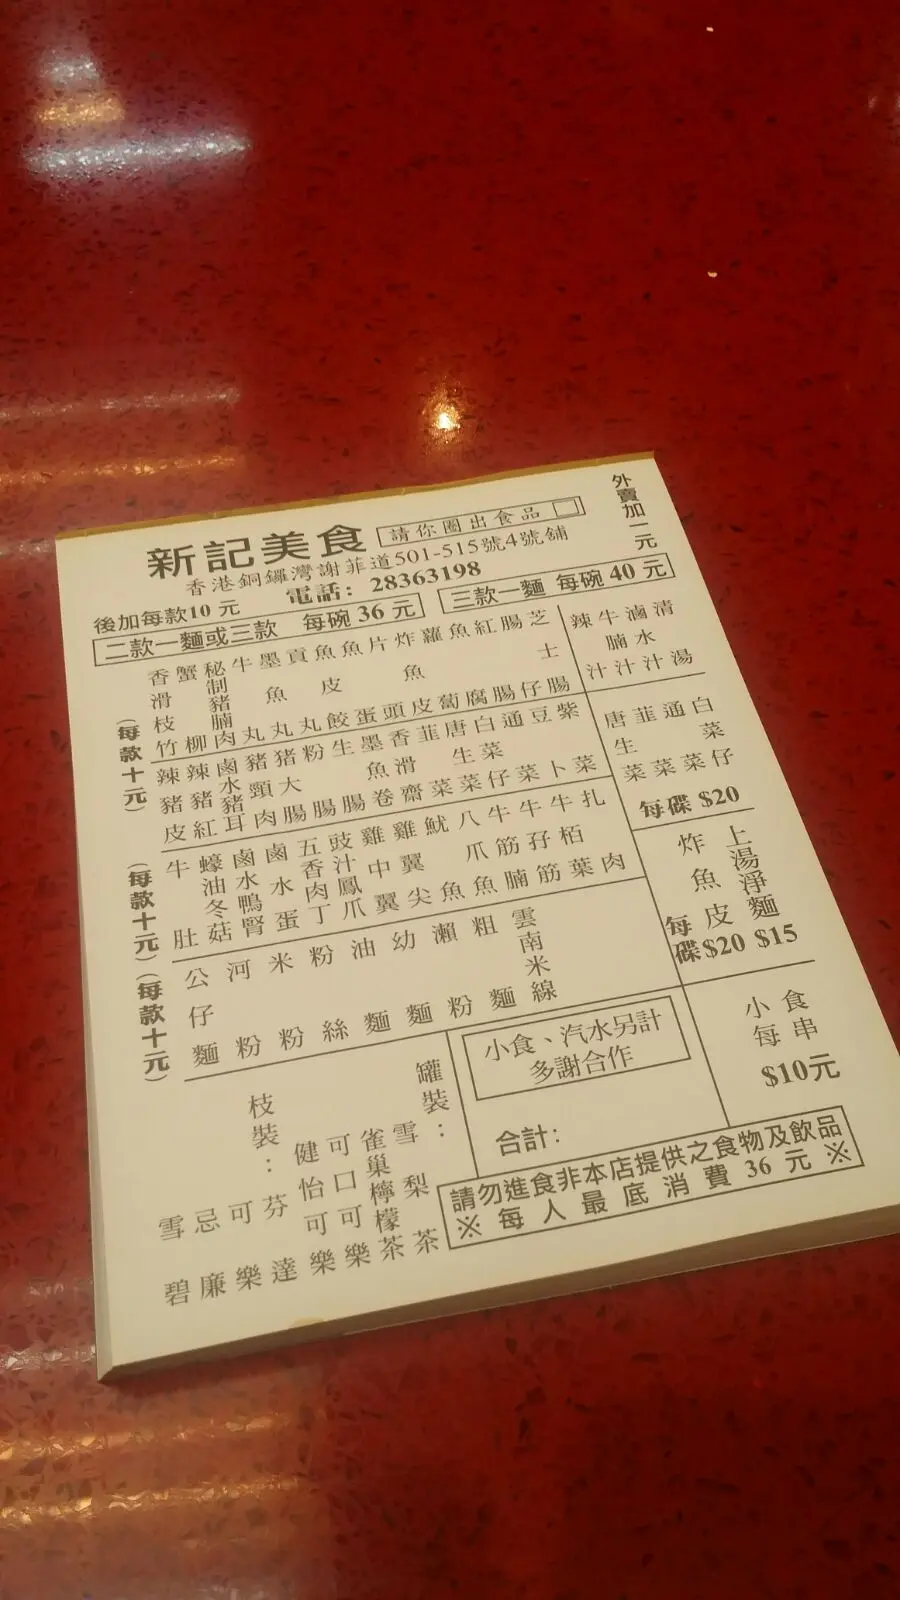 新記美食
請你圈出食品
外賣加一元
香港銅鑼灣謝菲道501-515號4號舖
電話：28363198
後加每款10 元
二款一麵或三款 每碗 36 元
三款一麵 每碗 40 元
(每款十元)
香滑枝竹
蟹柳
秘制豬腩肉
牛丸
墨魚丸
貢丸
魚皮餃
魚蛋
片頭
炸魚皮
蘿蔔
魚腐
紅腸
腸仔
芝士腸
辣汁
牛腩汁
滷水汁
清湯
辣豬皮
辣豬紅
鹵水豬耳
豬頸肉
豬大腸
粉腸
生腸
墨魚卷
香滑齋
韮菜
唐生菜
白菜仔
通菜
豆卜
紫菜
唐生菜
韮菜
通菜
白菜仔
每碟 $20
(每款十元)
牛肚
蠔油冬菇
鹵水鴨腎
鹵水蛋
五香肉丁
豉汁鳳爪
雞中翼
雞翼尖
魷魚
八爪魚
牛筋腩
牛孖筋
牛栢葉
扎肉
炸魚皮
每碟$20
上湯淨麵
$15
(每款十元)
公仔麵
河粉
米粉
粉絲
油麵
幼麵
瀨粉
粗麵
雲南米線
小食
每串
$10元
枝裝：
雪碧
忌廉
可樂
芬達
罐裝：
健怡可樂
可口可樂
雀巢檸檬茶
雪梨茶
小食、汽水另計
多謝合作
合計：
請勿進食非本店提供之食物及飲品
※ 每人最底消費 36 元 ※